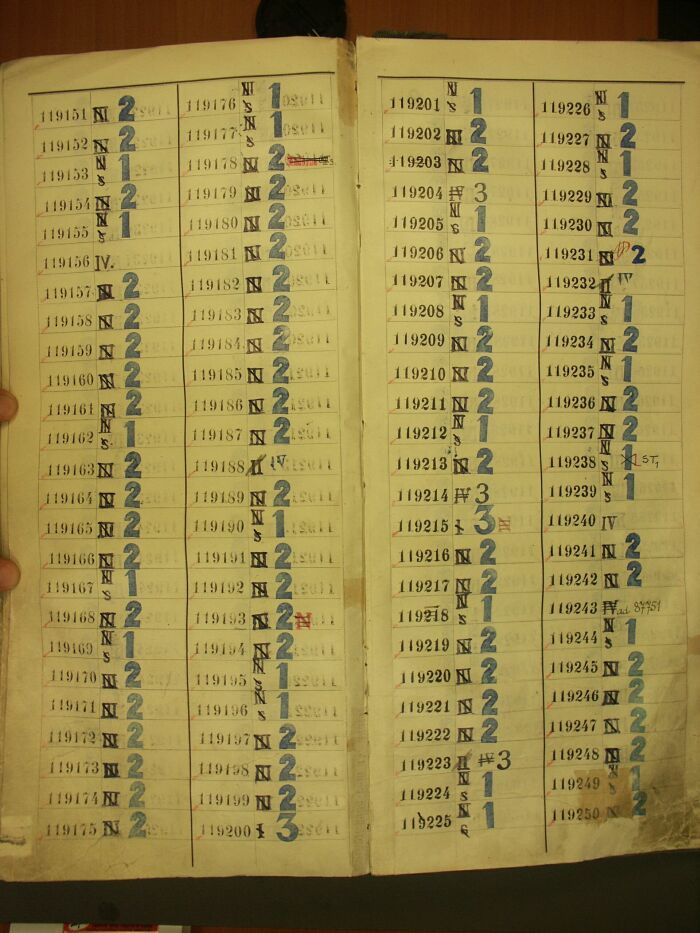 119151 N 2
119152 N 2
119153 N s 1
119154 N 2
119155 N s 1
119156 IV.
119157 N 2
119158 N 2
119159 N 2
119160 N 2
119161 N 2
119162 N s 1
119163 N 2
119164 N 2
119165 N 2
119166 N 2
119167 N s 1
119168 N 2
119169 N s 1
119170 N 2
119171 N 2
119172 N 2
119173 N 2
119174 N 2
119175 N 2
119176 N s 1
119177 N s 1
119178 N 2
119179 N 2
119180 N 2
119181 N 2
119182 N 2
119183 N 2
119184 N 2
119185 N 2
119186 N 2
119187 N 2
119188 II IV
119189 N 2
119190 N s 1
119191 N 2
119192 N 2
119193 N 2 N
119194 N 2
119195 N s 1
119196 N s 1
119197 N 2
119198 N 2
119199 N 2
119200 1 3
119201 N s 1
119202 N 2
119203 N 2
119204 IV 3
119205 N s 1
119206 N 2
119207 N 2
119208 N s 1
119209 N 2
119210 N 2
119211 N 2
119212 N s 1
119213 N 2
119214 IV 3
119215 1 3 N
119216 N 2
119217 N 2
119218 N s 1
119219 N 2
119220 N 2
119221 N 2
119222 N 2
119223 II IV 3
119224 N s 1
119225 N s 1
119226 N s 1
119227 N 2
119228 N s 1
119229 N 2
119230 N 2
119231 N 2
119232 II IV
119233 N s 1
119234 N 2
119235 N s 1
119236 N 2
119237 N 2
119238 N s 1 ST,
119239 N s 1
119240 IV
119241 N 2
119242 N 2
119243 IV ad 87751
119244 N s 1
119245 N 2
119246 N 2
119247 N 2
119248 N 2
119249 N s 1
119250 N 2